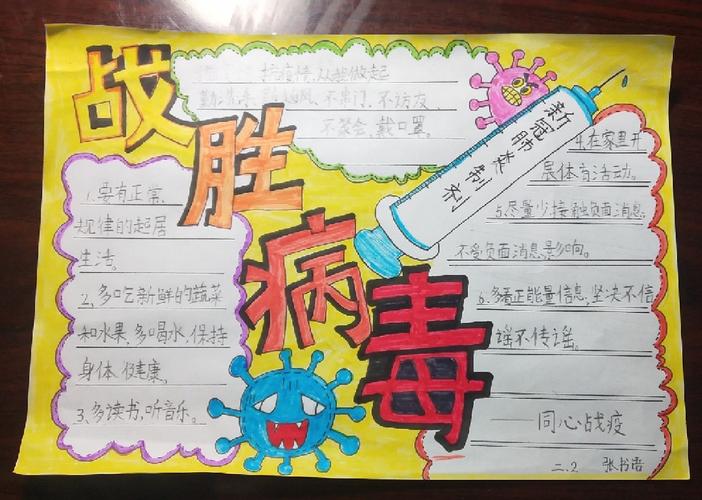 战胜病毒
抗疫情,从我做起
勤洗手 通风、不串门、不访友、
不聚会,戴口罩。
新冠肺炎制剂
1.要有正常、
规律的起居
生活。
2,多吃新鲜的蔬菜
和水果,多喝水,保持
身体健康。
3、多读书,听音乐。
4.在家里开
展体育活动。
5.尽量少接触负面消息。
不受负面消息影响。
6.多看正能量信息,坚决不信
谣不传谣。
——同心战疫
二.2 张书语